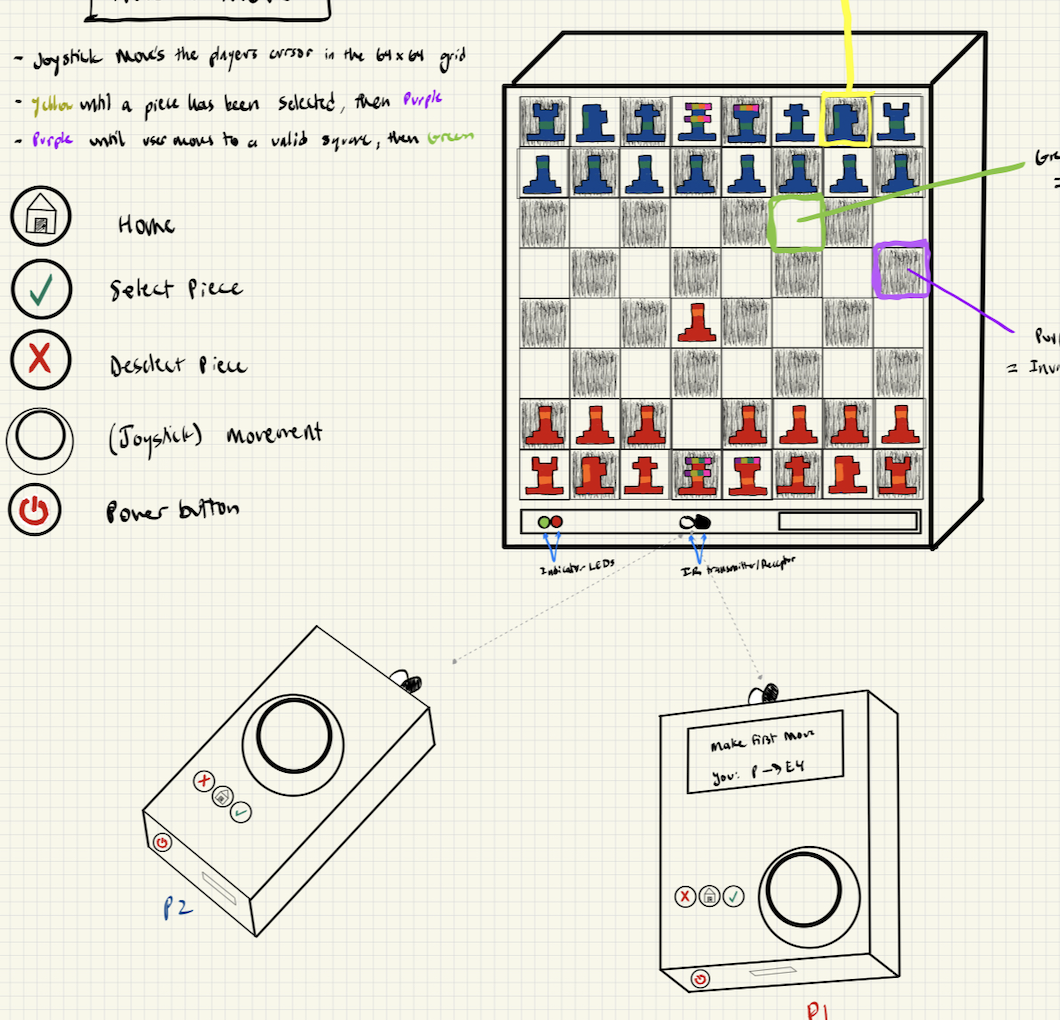 - Joystick Moves the players cursor in the 64x64 grid
- Yellow until a piece has been selected, then Purple
- Purple until user moves to a valid square, then Green
Home
Select Piece
Deselect Piece
(Joystick) movement
Power button
Indicator LEDs
IR transmitter/Receptor
Make First Move
You: P → E4
P2
P1